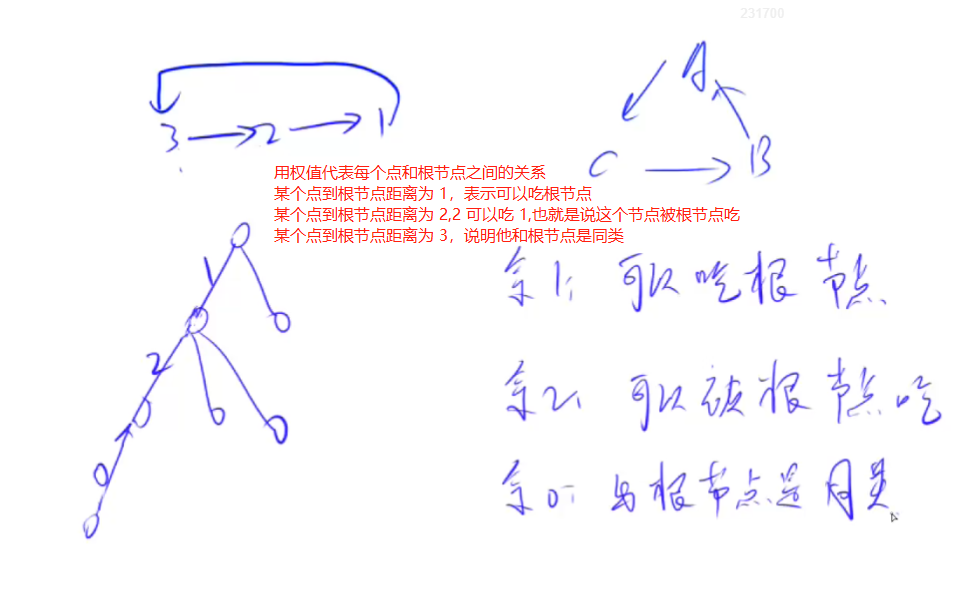 231700
A
3 → 2 → 1
C → B
用权值代表每个点和根节点之间的关系
某个点到根节点距离为 1，表示可以吃根节点
某个点到根节点距离为 2,2 可以吃 1,也就是说这个节点被根节点吃
某个点到根节点距离为 3，说明他和根节点是同类
1
余1: 可以吃根节点.
2
余2: 可以被根节点吃
0
余0: 与根节点是同类.